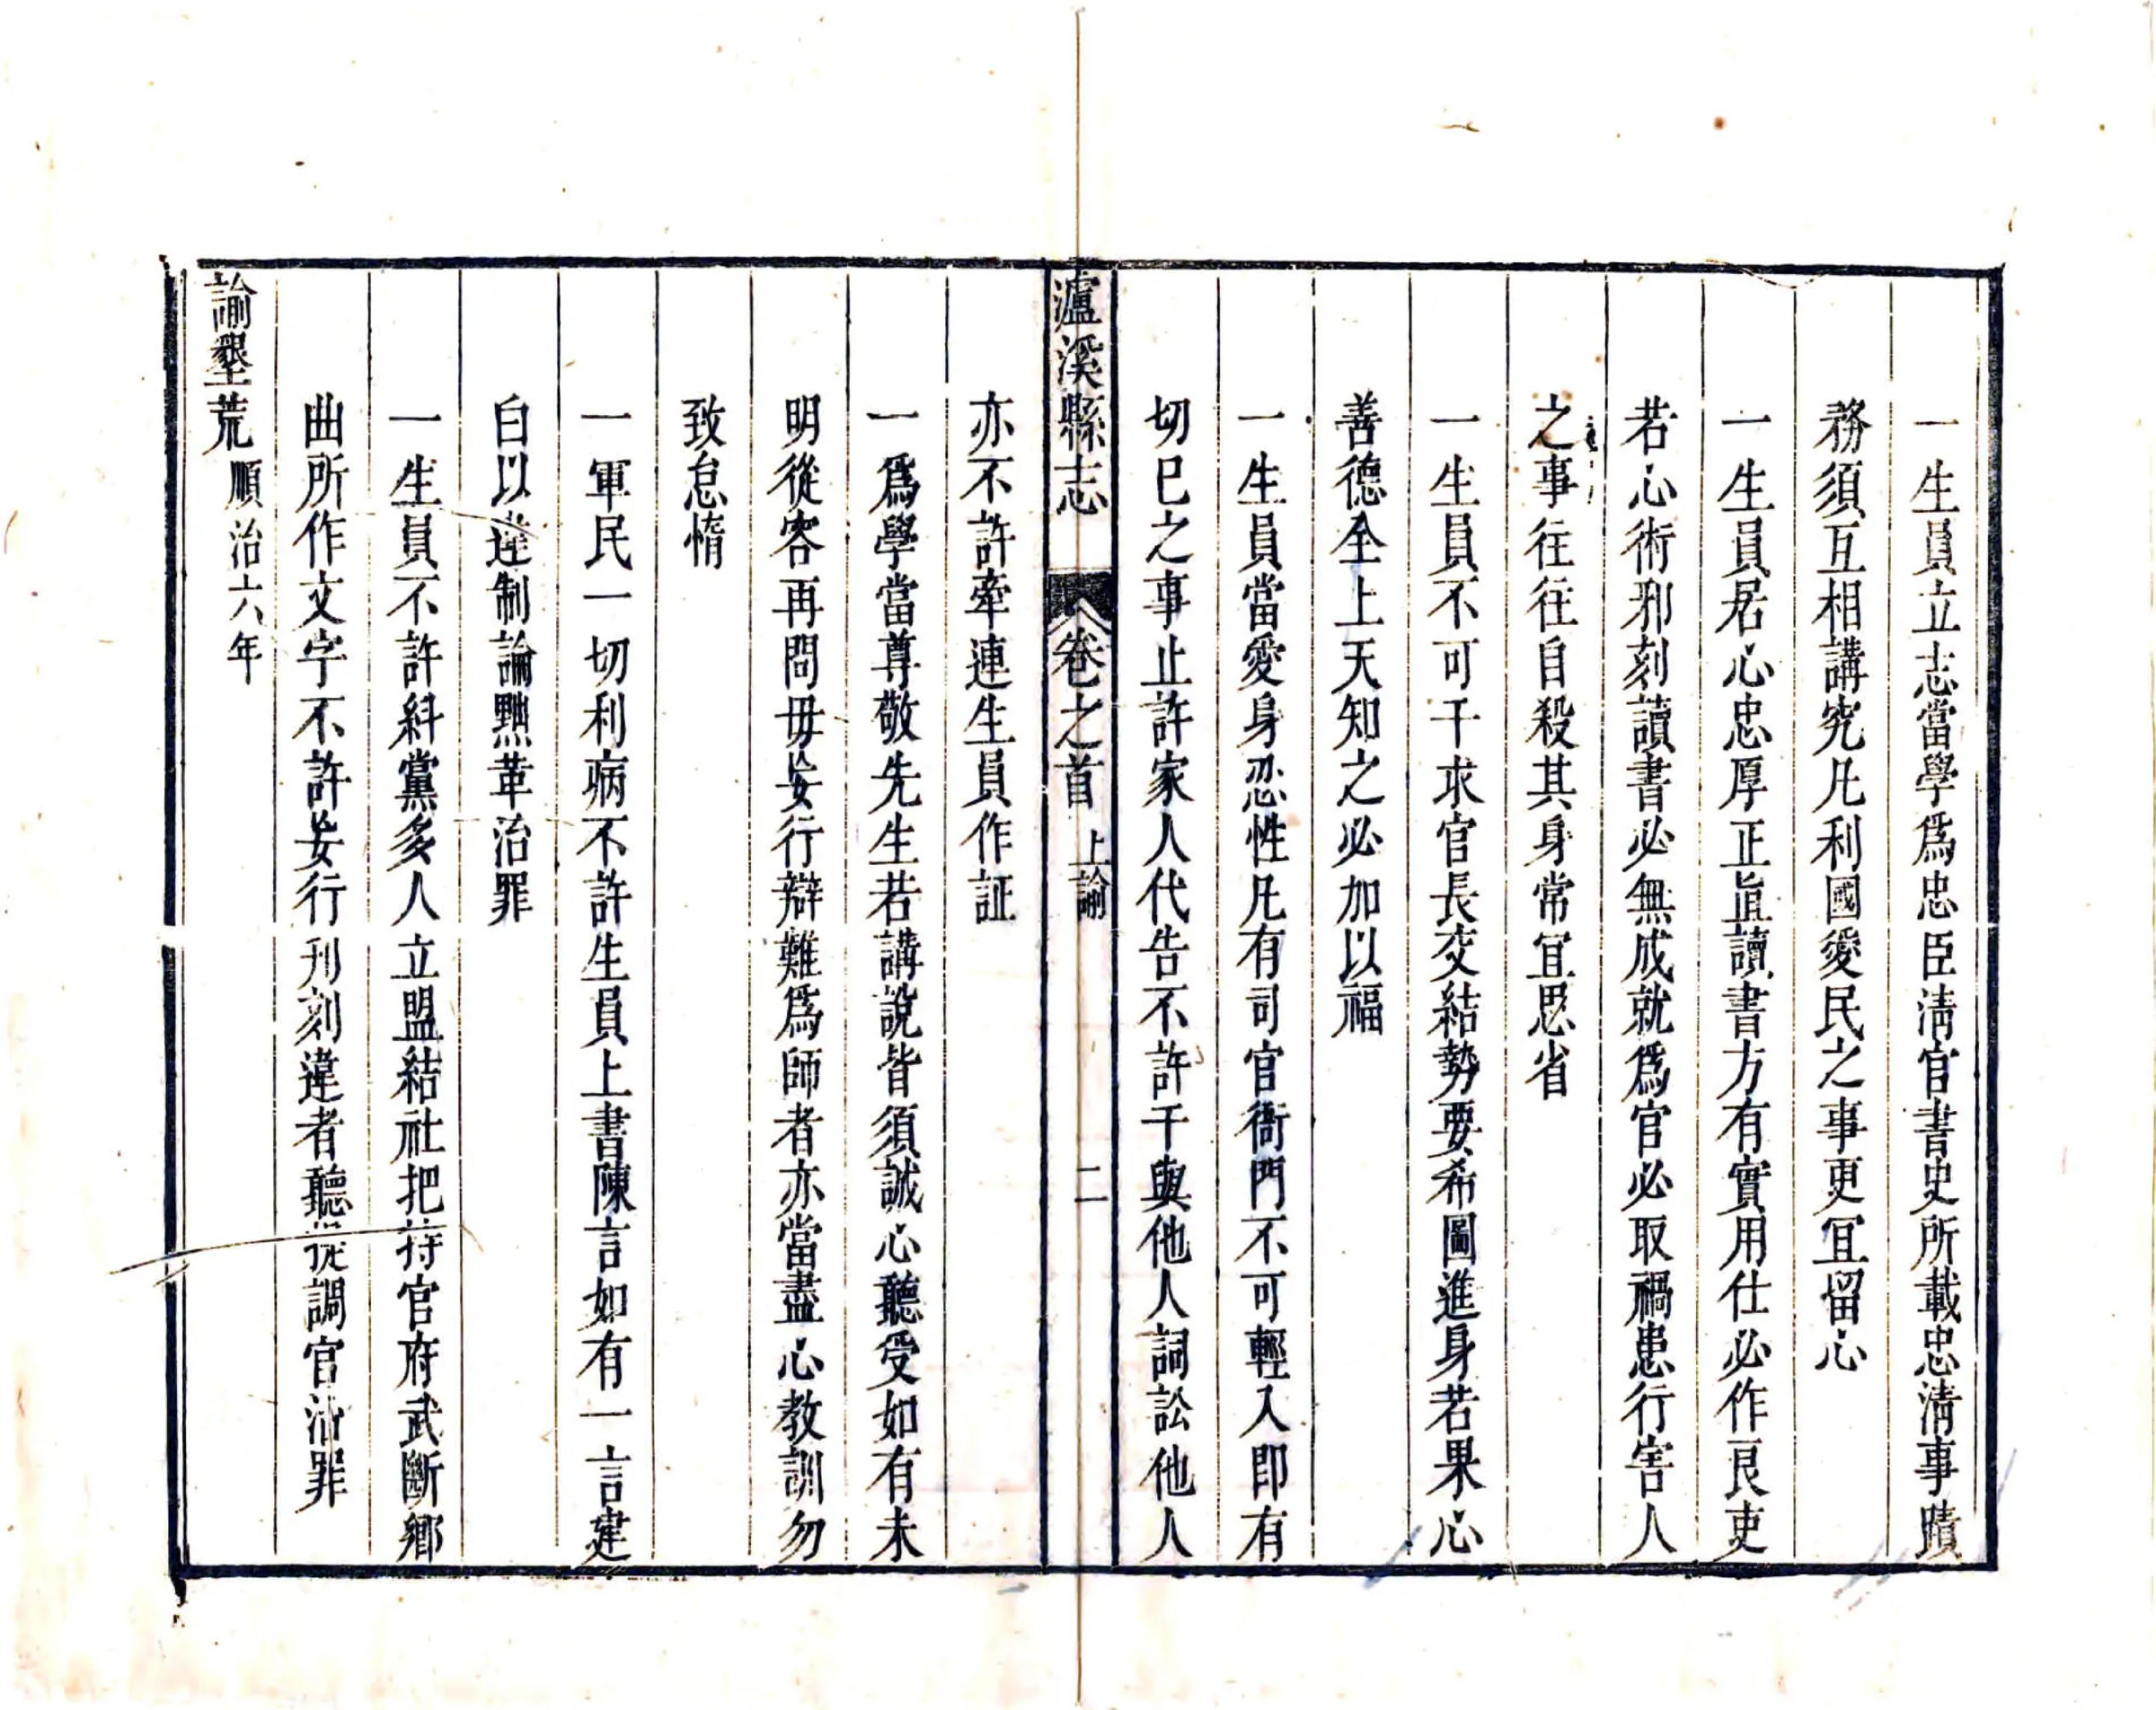 一生員立志當學爲忠臣清官書史所載忠清事蹟
務須互相講究凡利國愛民之事更宜留心
一生員居心忠厚正直讀書方有實用仕必作良吏
若心術邪刻讀書必無成就爲官必取禍患行害人
之事往往自殺其身常宜思省
一生員不可干求官長交結勢要希圖進身若果心
善德全上天知之必加以福
一生員當愛身忍性凡有司官衙門不可輕入即有
切己之事止許家人代告不許干與他人詞訟他人
瀘溪縣志 卷之首 上諭 二
亦不許牽連生員作証
一爲學當尊敬先生若講說皆須誠心聽受如有未
明從容再問毋妄行辯難爲師者亦當盡心教訓勿
致怠惰
一軍民一切利病不許生員上書陳言如有一言建
白以違制論黜革治罪
一生員不許糾黨多人立盟結社把持官府武斷鄉
曲所作文字不許妄行刋刻違者聽提調官治罪
諭墾荒順治六年